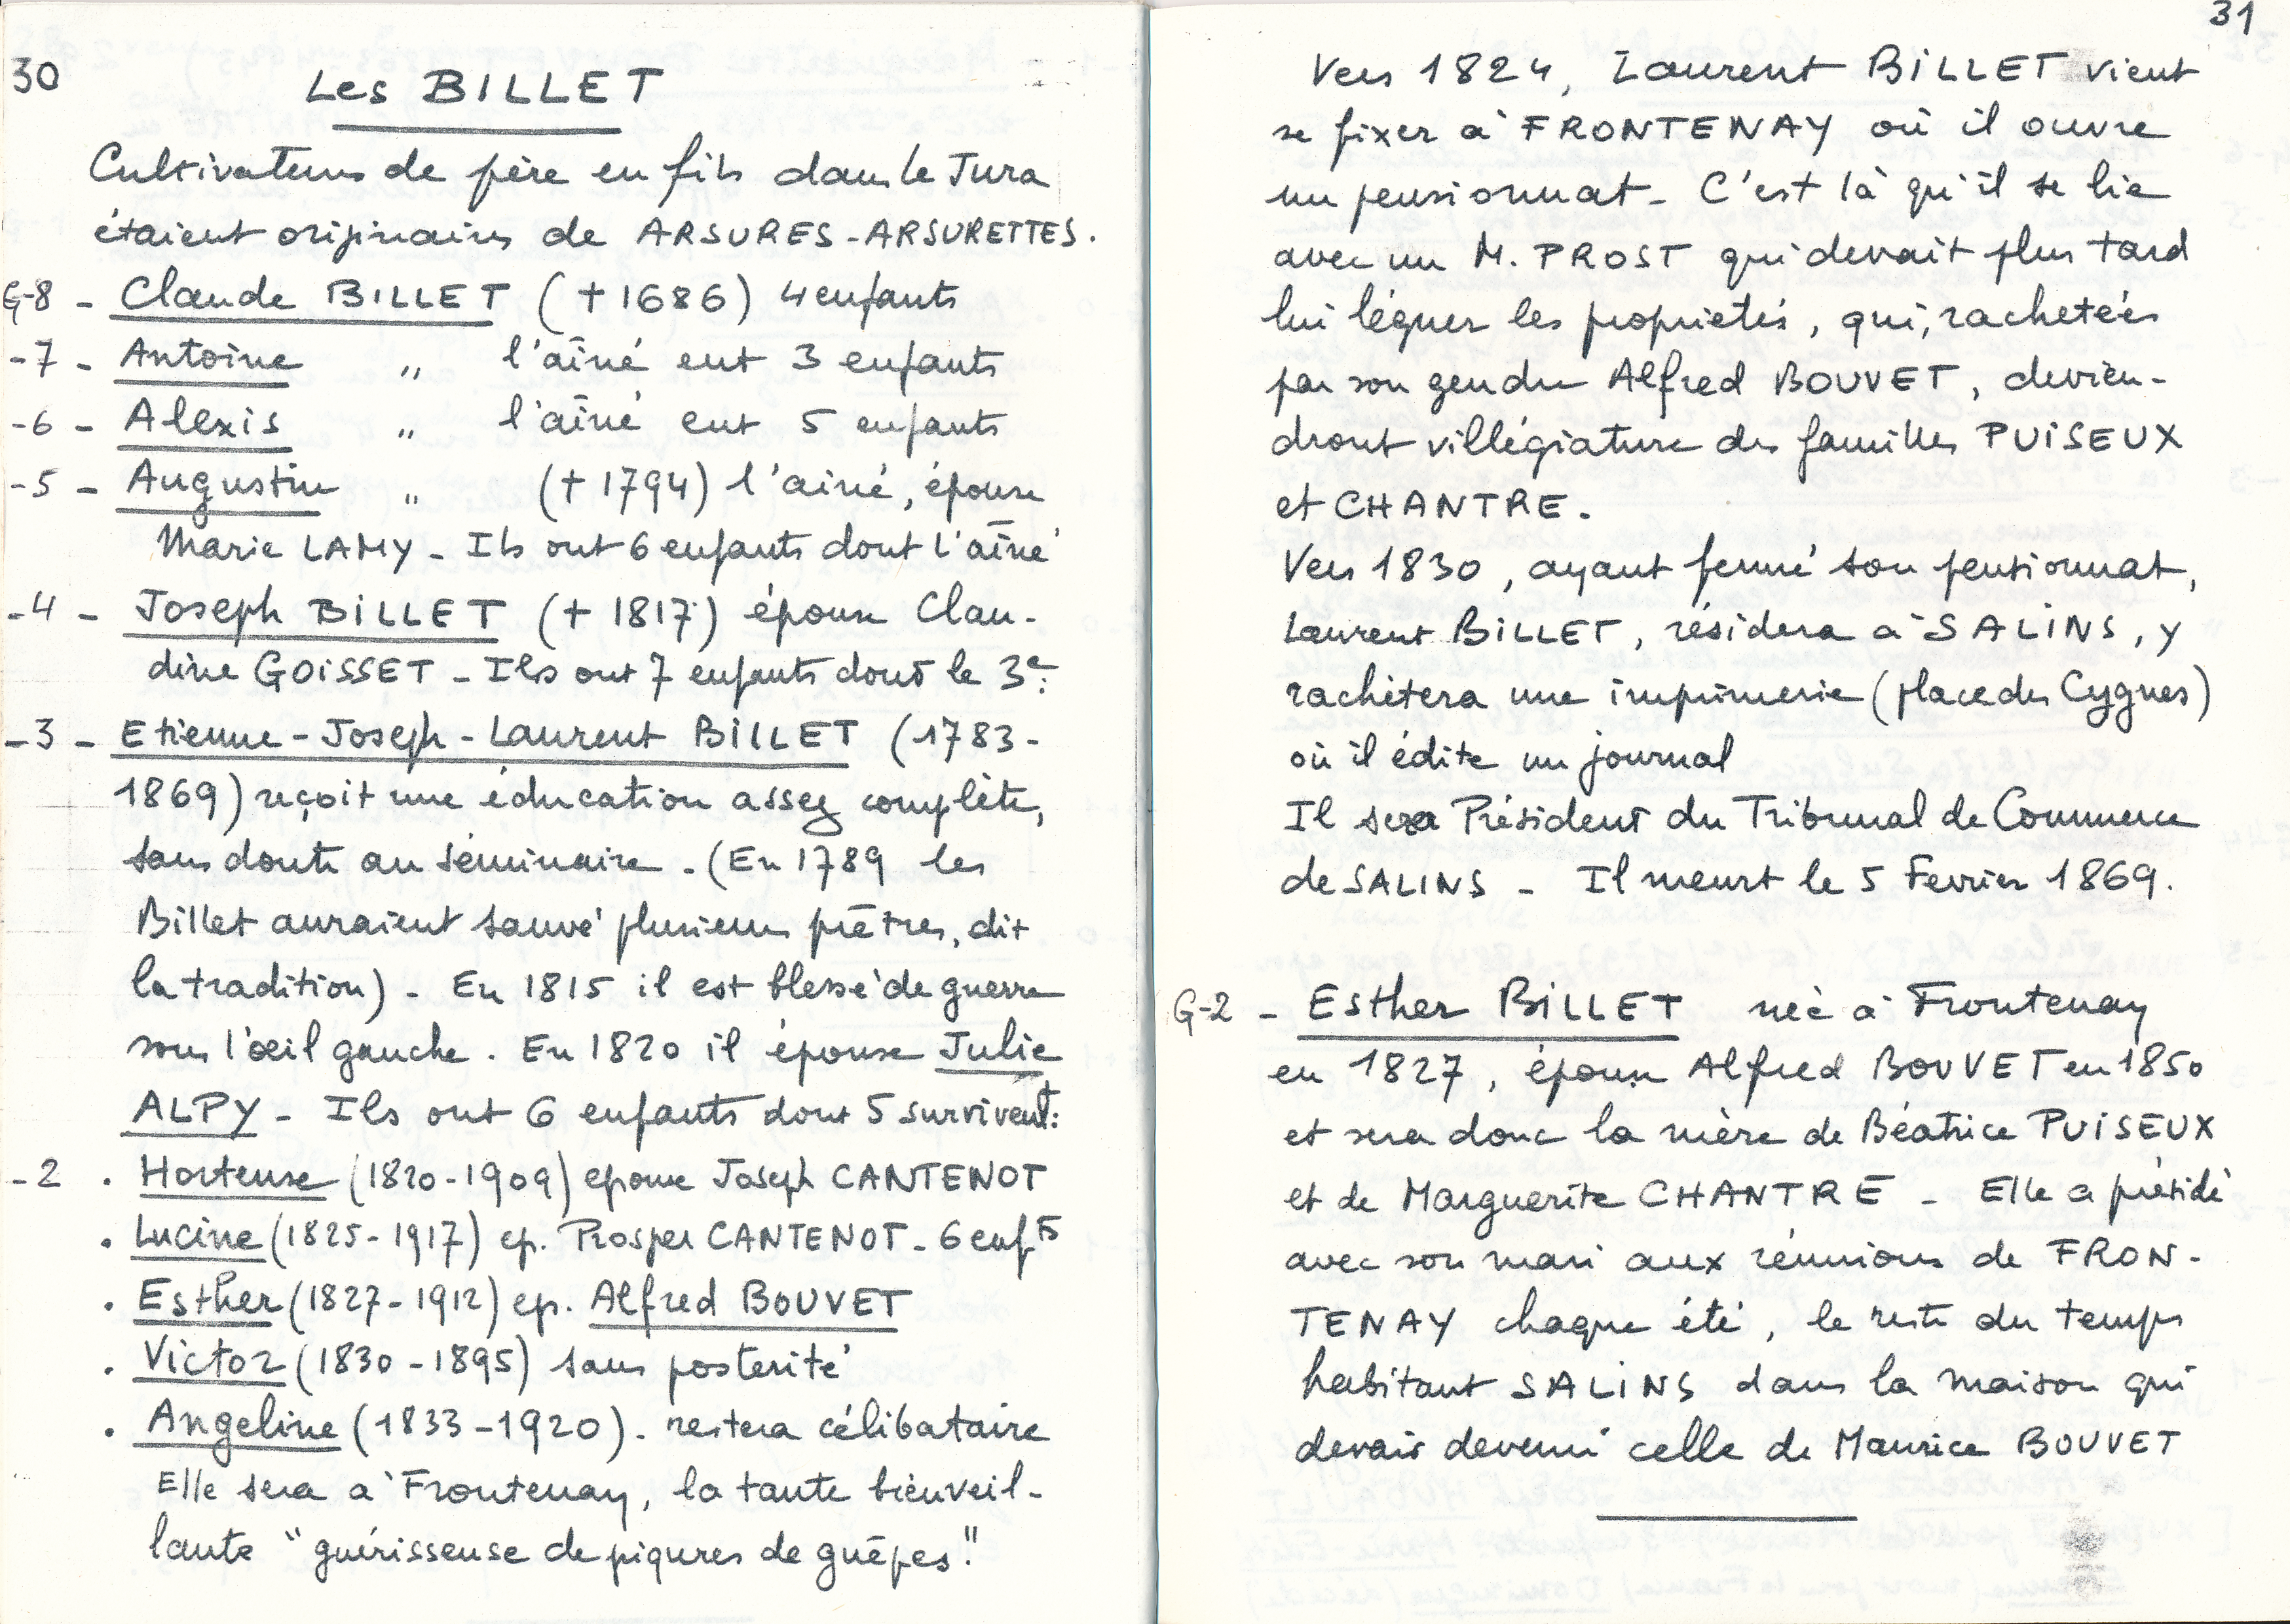 30
Les BILLET
Cultivateurs de père en fils dans le Jura
étaient originaires de ARSURES-ARSURETTES.
G-8 - Claude BILLET (+1686) 4 enfants
-7 - Antoine " l'aîné eut 3 enfants
-6 - Alexis " l'aîné eut 5 enfants
-5 - Augustin " (+ 1794) l'ainé, épouse
Marie LAMY - Ils ont 6 enfants dont l'aîné
-4 - Joseph BILLET (+ 1817) épouse Clau-
dine GOISSET - Ils ont 7 enfants dont le 3e:
-3 - Etienne-Joseph-Laurent BILLET (1783-
1869) reçoit une éducation assez complète,
sans doute au séminaire - (En 1789 les
Billet auraient sauvé plusieurs prêtres, dit
la tradition) - En 1815 il est blessé de guerre
sous l'œil gauche. En 1820 il épouse Julie
ALPY - Ils ont 6 enfants dont 5 survivent:
-2 . Hortense (1820-1909) epouse Joseph CANTENOT
. Lucine (1825-1917) ep. Prosper CANTENOT - 6 enfts
. Esther (1827-1912) ep. Alfred BOUVET
. Victor (1830-1895) sans posterité
. Angeline (1833-1920). restera célibataire
Elle sera à Frontenay, la tante bienveil-
lante "guérisseuse de piqures de guêpes."
31
Vers 1824, Laurent BILLET vient
se fixer à FRONTENAY où il ouvre
un pensionnat - C'est là qu'il se lie
avec un M. PROST qui devait plus tard
lui léguer les propriétés, qui, rachetées
par son gendre Alfred BOUVET, devien-
dront villégiature des familles PUISEUX
et CHANTRE.
Vers 1830, ayant fermé son pensionnat,
Laurent BILLET, résidera à SALINS, y
rachètera une imprimerie (place des Cygnes)
où il édite un journal
Il sera Président du Tribunal de Commerce
de SALINS - Il meurt le 5 Fevrier 1869.
G-2 - Esther BILLET née à Frontenay
en 1827, épouse Alfred BOUVET en 1850
et sera donc la mère de Béatrice PUISEUX
et de Marguerite CHANTRE - Elle a présidé
avec son mari aux réunions de FRON-
TENAY chaque été, le reste du temps
habitant SALINS dans la maison qui
devait devenir celle de Maurice BOUVET